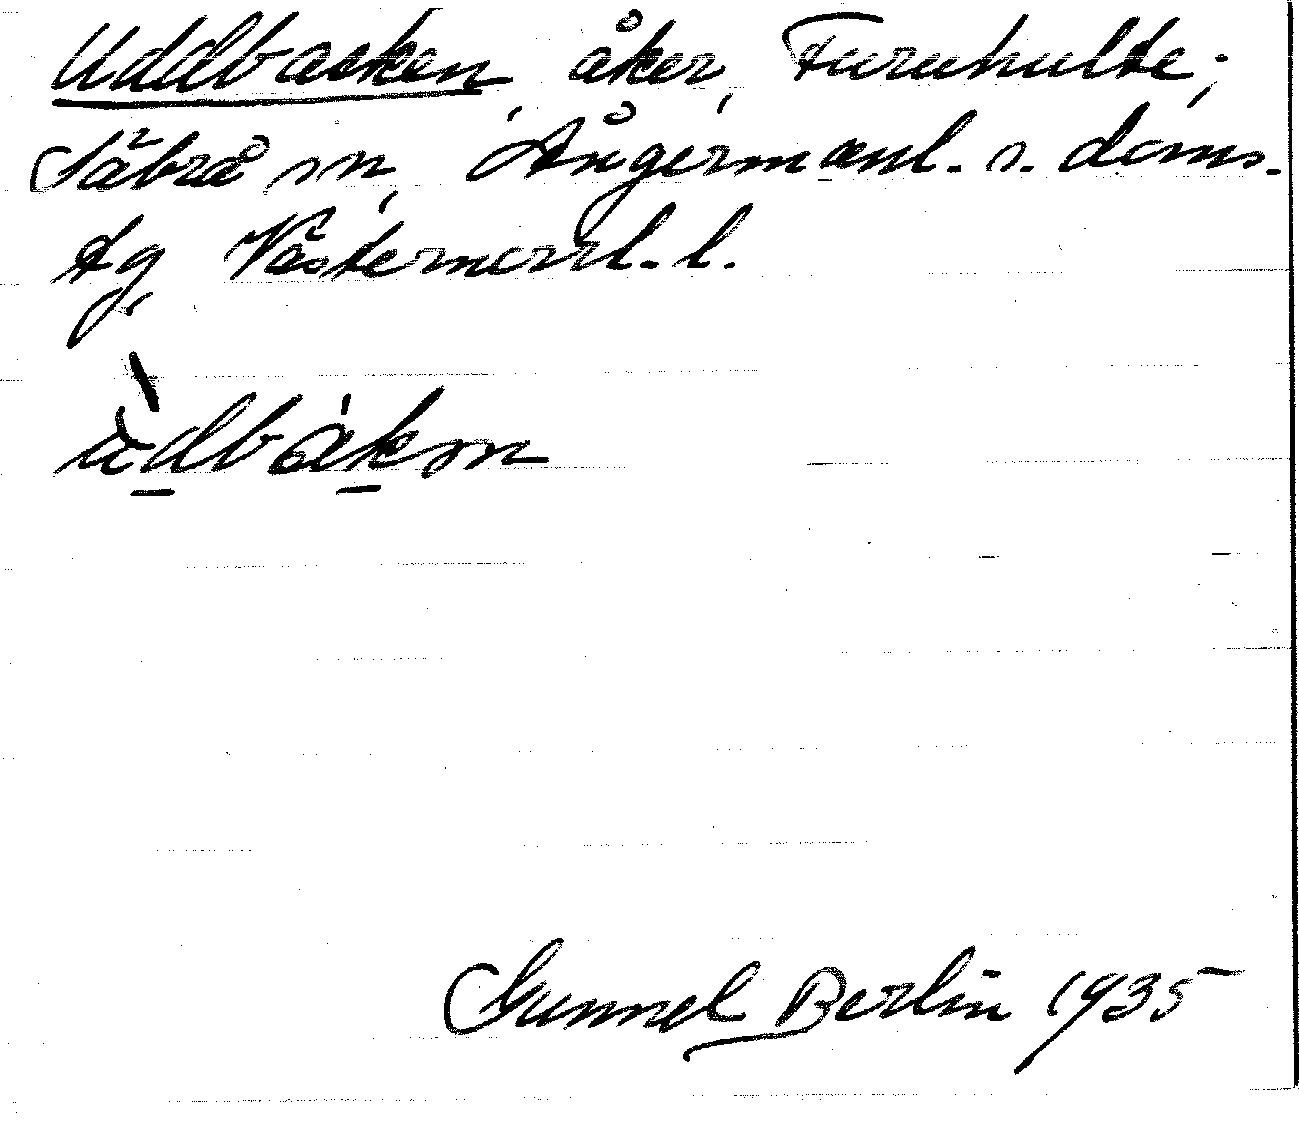 Uddbacken, åker, Furuhulte;
Säbrå sn, Ångermanl. s. doms.
tg, Västernorrl. l.
ùdbákɷn
Gunnel Berlin 1935